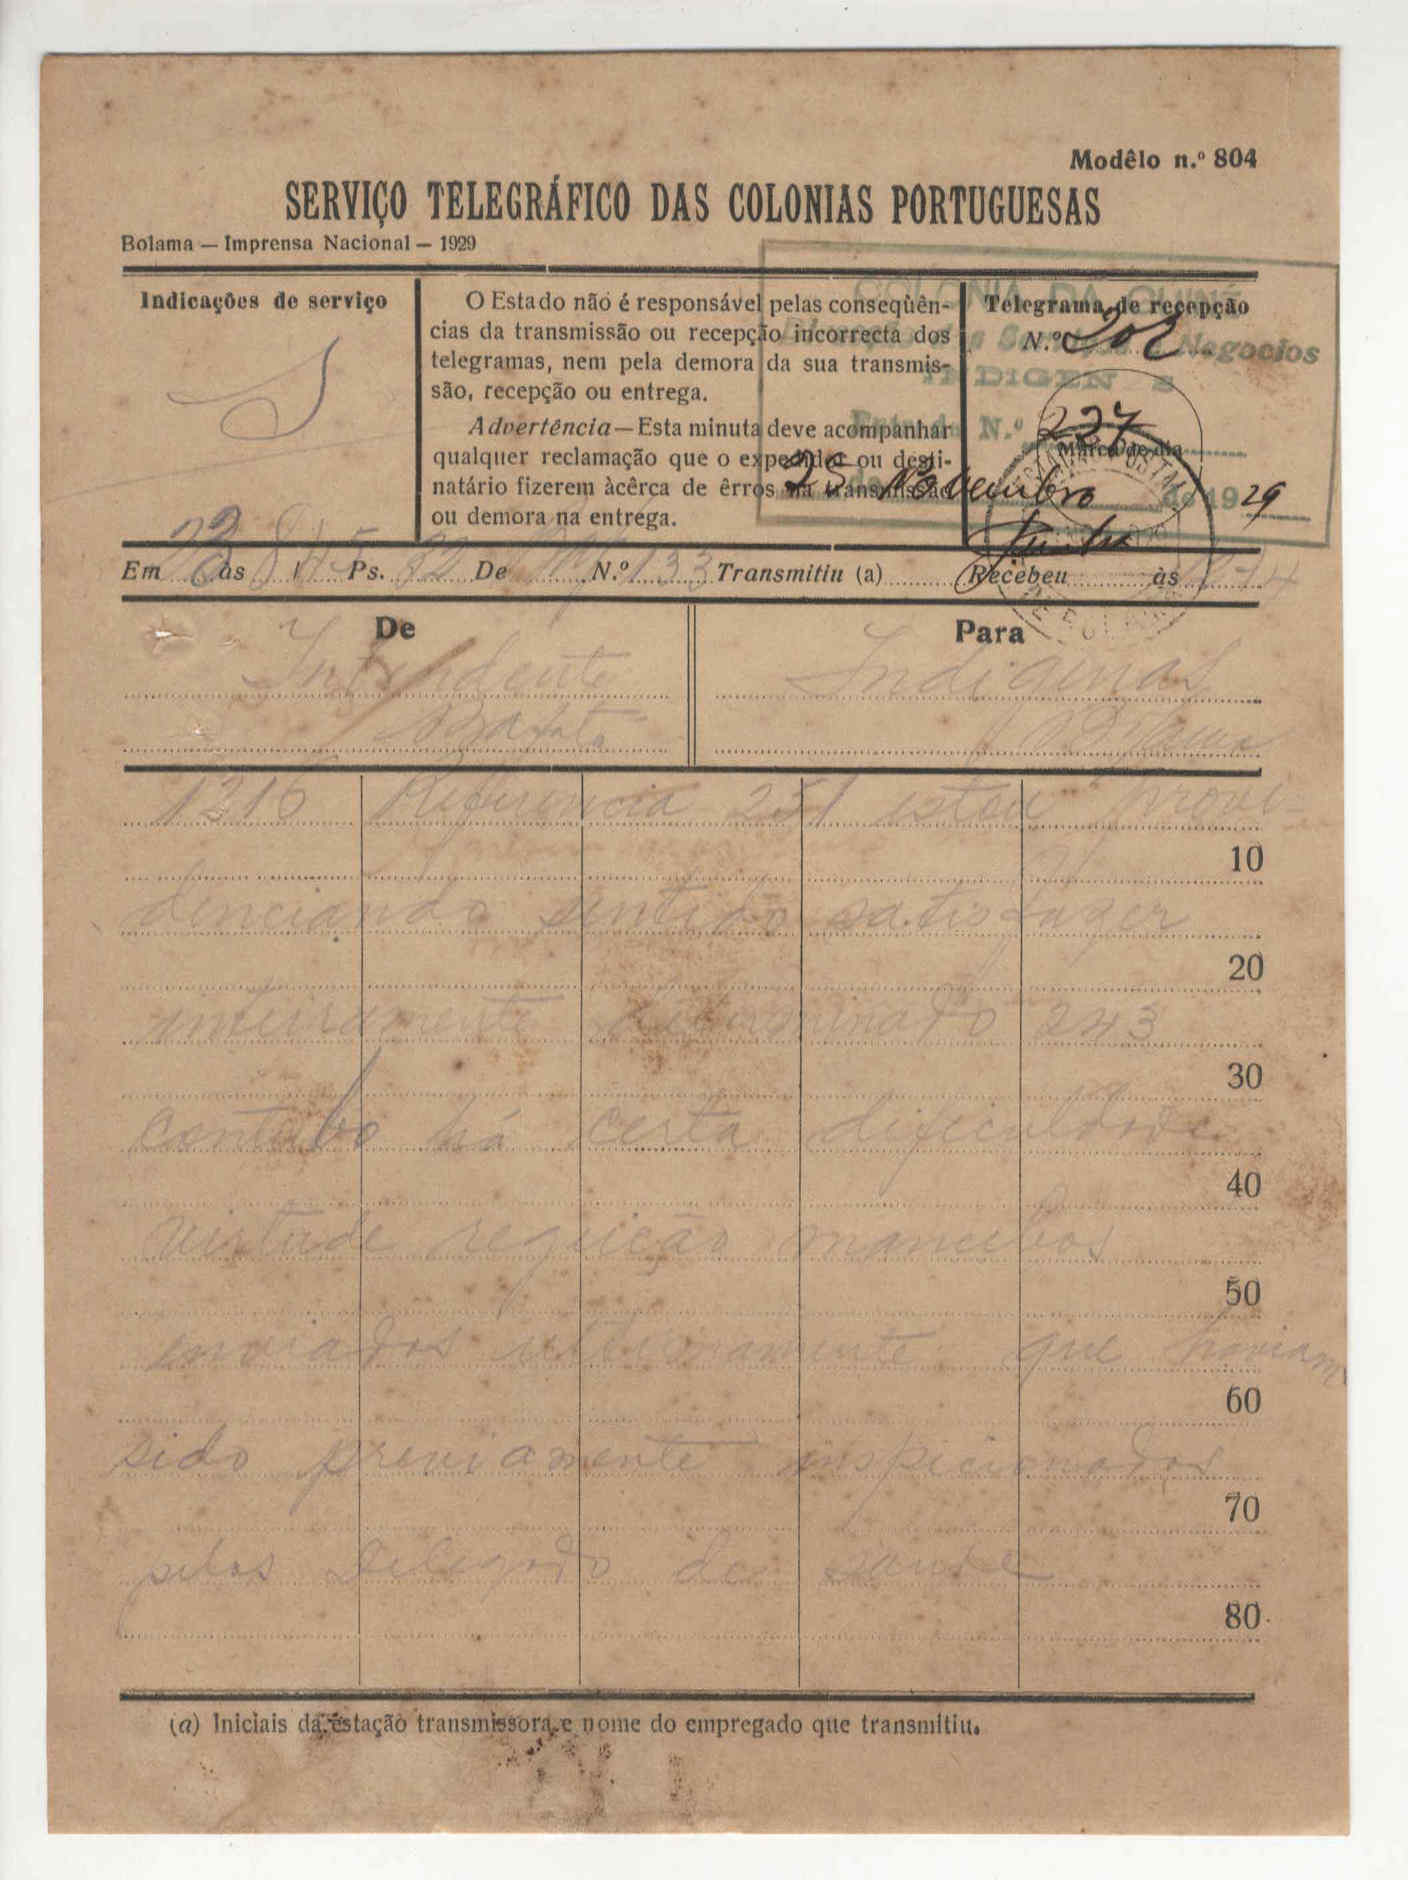 Modêlo n.º 804
SERVIÇO TELEGRÁFICO DAS COLONIAS PORTUGUESAS
Bolama — Imprensa Nacional — 1929
Indicações de serviço
S
O Estado não é responsável pelas conseqùên-
cias da transmissão ou recepção incorrecta dos
telegramas, nem pela demora da sua transmis-
são, recepção ou entrega.
Advertência—Esta minuta deve acompanhar
qualquer reclamação que o expedidor ou desti-
natário fizerem àcêrca de êrros na transmissão
ou demora na entrega.
Telegrama de recepção
N.º 202
Marca do dia
COLONIA DA GUINÉ
Negocios
INDIGENAS
Entrada N.º 227
25 de Novembro de 1929
Em 23 às 845 Ps. 32 De N.º 133 Transmitiu (a) Recebeu às
De
Intendente
Para
Indigenas
Bolama
1316 Referencia 251 estou provi-
denciando sentido satisfazer
inteiramente determinado 243
contudo há certa dificuldade
virtude reguição mancebos
enviados ultimamente que haviam
sido previamente inspicionados
pelos Delegado de saude
10
20
30
40
50
60
70
80
(a) Iniciais da estação transmissora e nome do empregado que transmitiu.